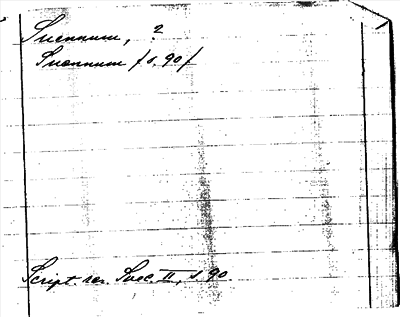 Suennum, ?
Suennum /s. 90/
Script. rer. Svec. II, s. 90.